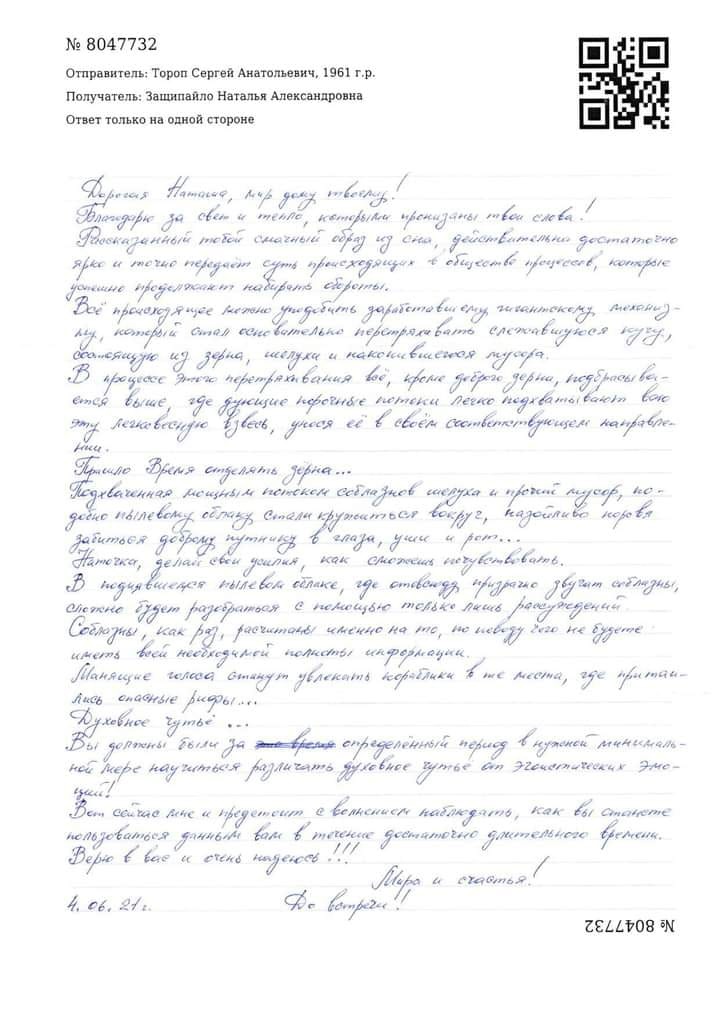 № 8047732
Отправитель: Тороп Сергей Анатольевич, 1961 г.р.
Получатель: Защипайло Наталья Александровна
Ответ только на одной стороне
Дорогая Наташа, мир дому твоему!
Благодарю за свет и тепло, которыми пронизаны твои слова!
Рассказанный тобой смачный образ из сна, действительно достаточно
ярко и точно передаёт суть происходящих в обществе процессов, которые
успешно продолжают набирать обороты.
Всё происходящее можно уподобить заработавшему гигантскому механиз-
му, который стал основательно перетряхивать слежавшуюся кучу,
состоящую из зерна, шелухи и накопившегося мусора.
В процессе этого перетряхивания всё, кроме доброго зерна, подбрасыва-
ется выше, где дующие порочные потоки легко подхватывают всю
эту легковесную взвесь, унося её в своём соответствующем направле-
нии.
Пришло Время отделять зёрна...
Подхваченная мощным потоком соблазнов шелуха и прочий мусор, по-
добно пылевому облаку стали кружиться вокруг, назойливо норовя
забиться доброму путнику в глаза, уши и рот...
Наточка, делай свои усилия, как сможешь почувствовать.
В поднявшемся пылевом облаке, где отовсюду призрачно звучат соблазны,
сложно будет разобраться с помощью только лишь рассуждений.
Соблазны, как раз, расчитаны именно на то, по поводу чего не будете
иметь всей необходимой полноты информации.
Манящие голоса станут увлекать кораблики в те места, где притаи-
лись опасные рифы...
Духовное чутьё ...
Вы должны были за это время определённый период в нужной минималь-
ной мере научиться различать духовное чутьё от эгоистических эмо-
ций!
Вот сейчас мне и предстоит с волнением наблюдать, как вы станете
пользоваться данным вам в течение достаточно длительного времени.
Верю в вас и очень надеюсь!!!
Мира и счастья!
4.06.21 г. До встречи!!
№ 8047732